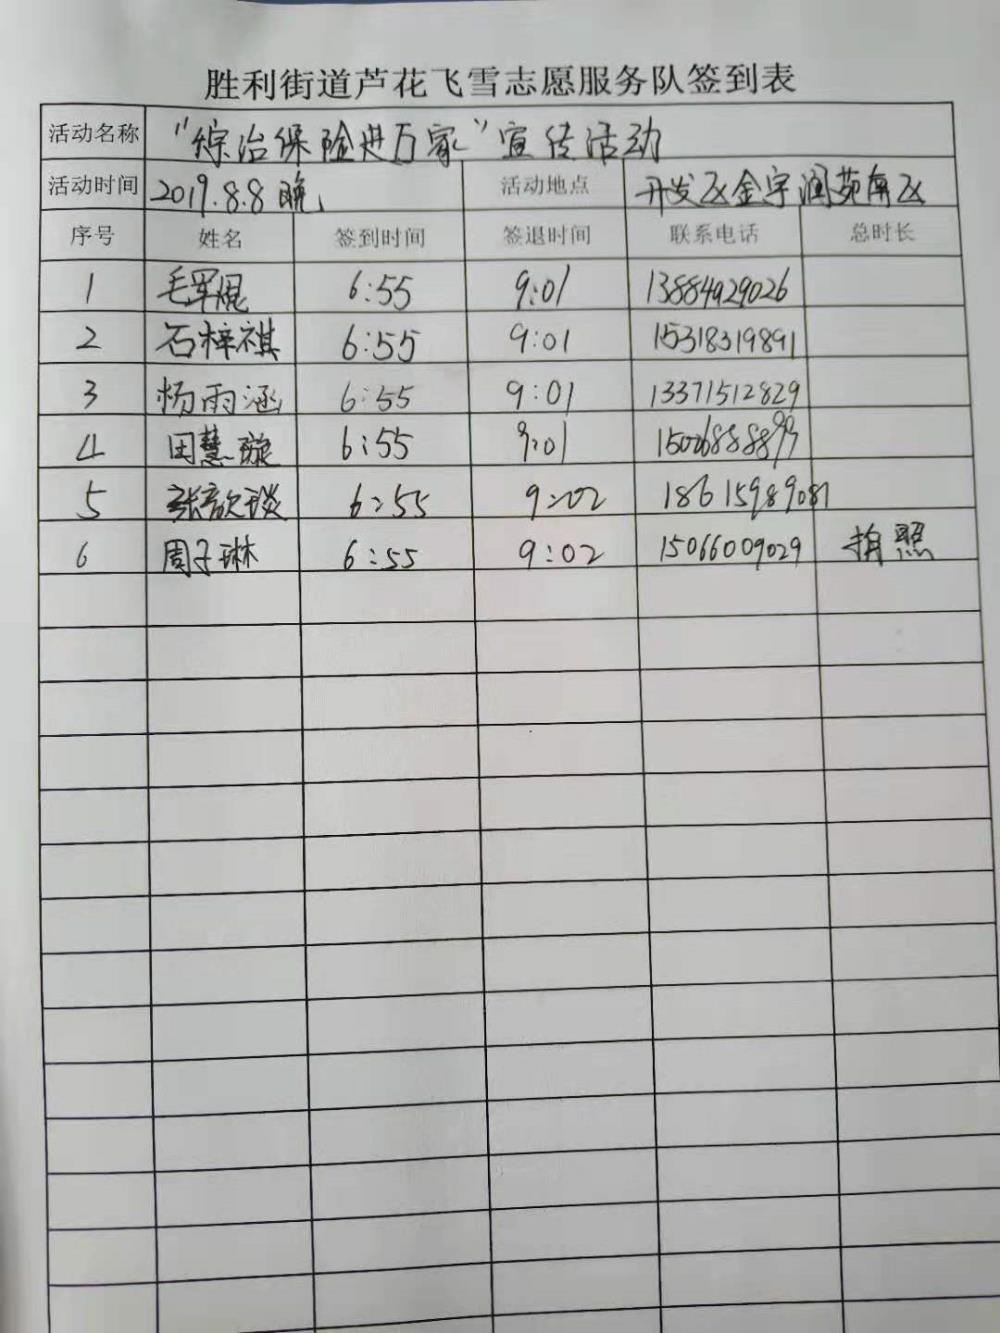 胜利街道芦花飞雪志愿服务队签到表
活动名称 "综治保险进万家"宣传活动
活动时间 2019.8.8晚 活动地点 开发区金宇润苑南区
序号 姓名 签到时间 签退时间 联系电话 总时长
1 毛军焜 6:55 9:01 13884929026
2 石梓祺 6:55 9:01 15318319891
3 杨雨涵 6:55 9:01 13371512829
4 田慧璇 6:55 9:01
5 张歆琰 6:55 9:02 18615989081
6 周子琳 6:55 9:02 15066009029 拍照